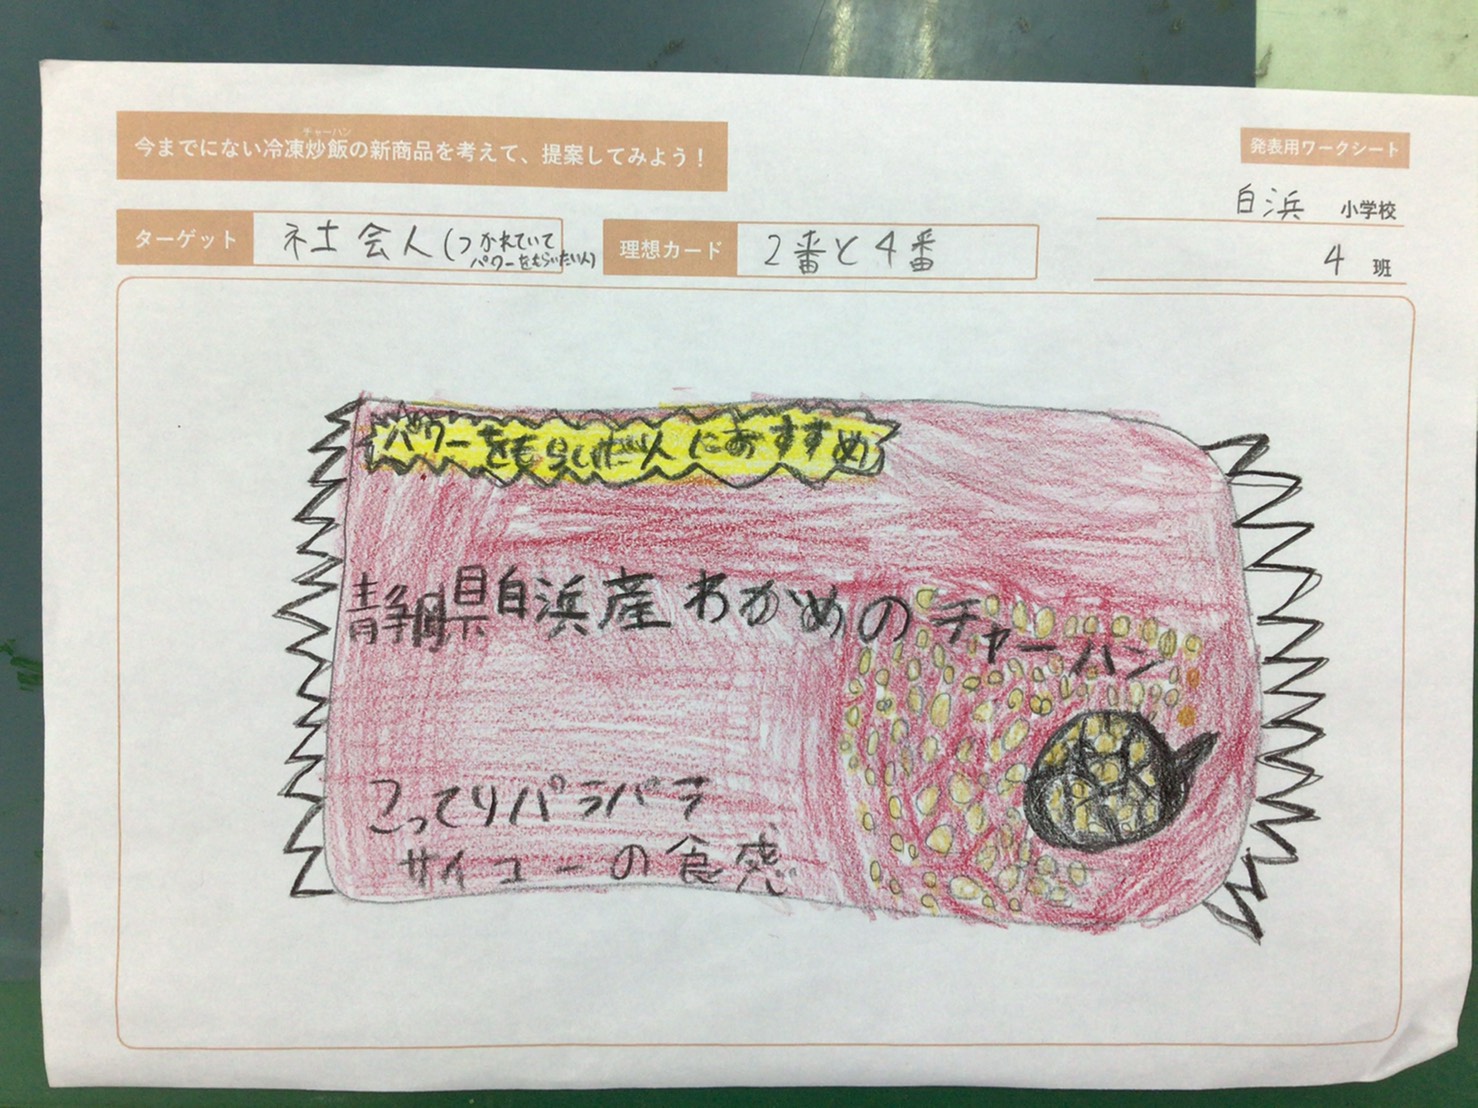 チャーハン
今までにない冷凍炒飯の新商品を考えて、提案してみよう！
発表用ワークシート
白浜 小学校
ターゲット 社会人(つかれていて
パワーをもらいたい人)
理想カード 2番と4番
4 班
パワーをもらいたい人におすすめ
静岡県白浜産わかめのチャーハン
こってりパラパラ
サイコーの食感